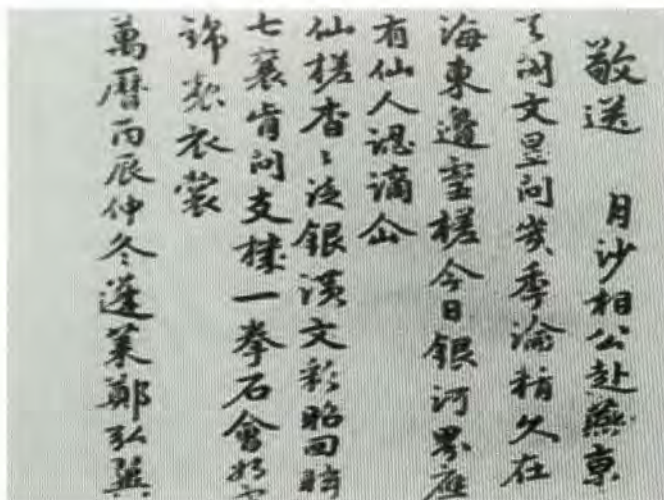 敬送 月沙相公赴燕京
天闕文星問幾季淪精久在
海東邊靈槎今日銀河畧應
有仙人認謫仚
仙槎杳〻泛銀漢文彩昭回時
七襄肯問支機一拳石會
錦裂衣裳
萬曆丙辰仲冬蓬萊鄭弘翼